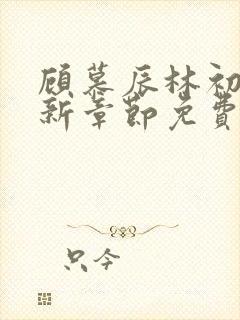 顾慕辰林初
新章节免费
只今